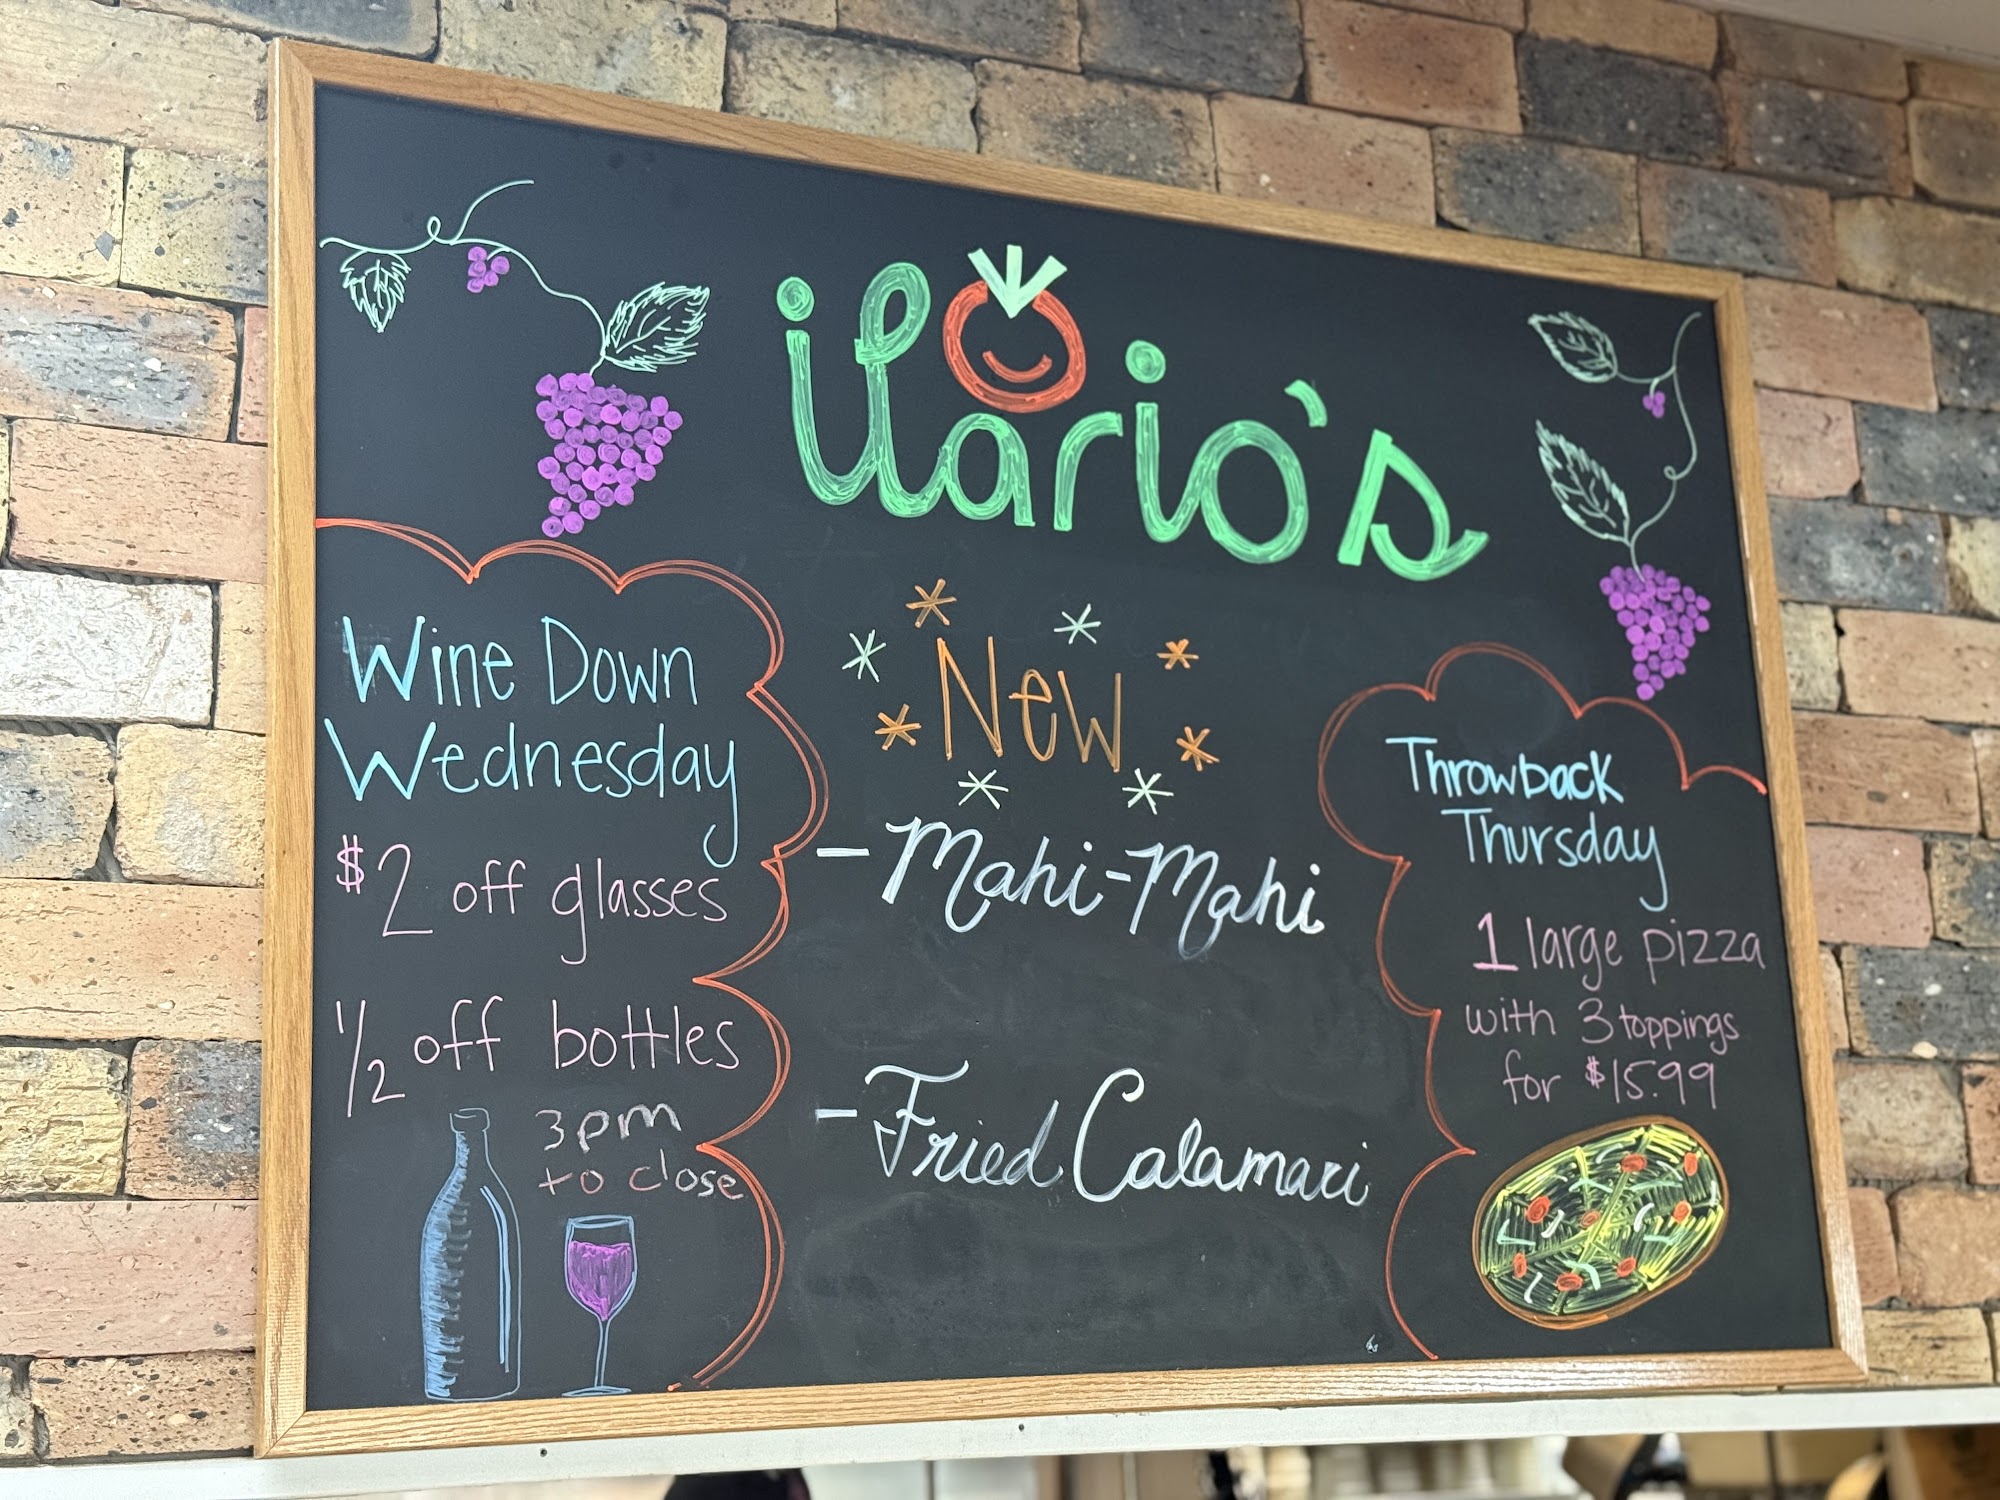 ilario's
Wine Down
Wednesday
$2 off glasses
1/2 off bottles
3pm
to close
New
- Mahi-Mahi
- Fried Calamari
Throwback
Thursday
1 large pizza
with 3 toppings
for $15.99